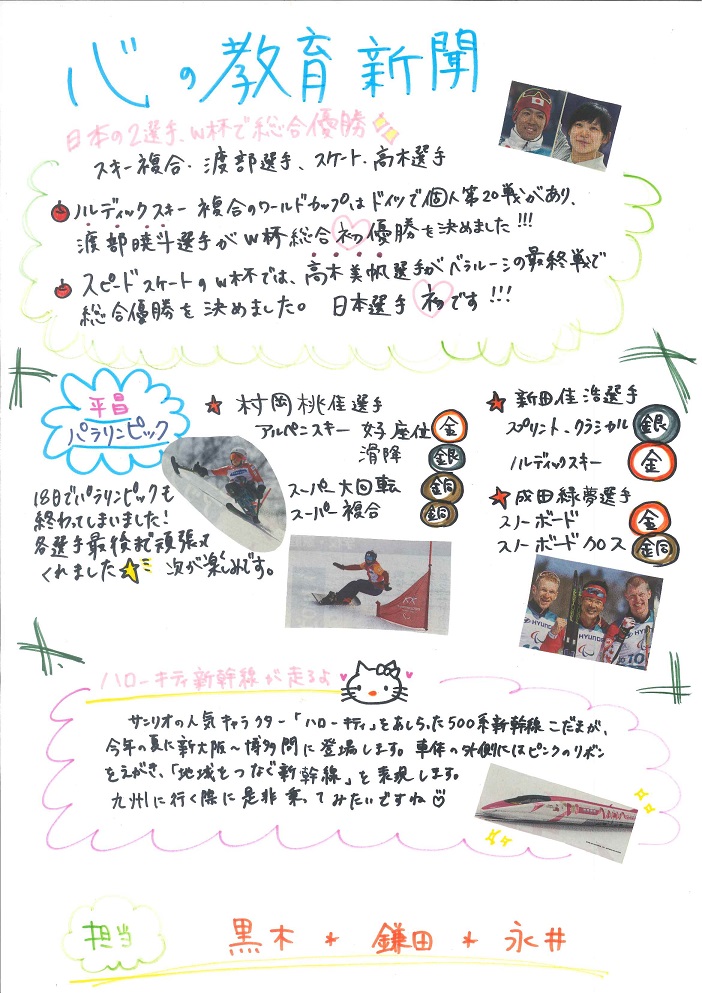 心の教育新聞
日本の2選手、W杯で総合優勝
スキー複合・渡部選手、スケート・高木選手
ノルディックスキー複合のワールドカップはドイツで個人第20戦があり、
渡部暁斗選手がW杯総合初優勝を決めました!!!
スピードスケートのW杯では、高木美帆選手がベラルーシの最終戦で
総合優勝を決めました。日本選手初です!!!
平昌
パラリンピック
18日でパラリンピックも
終わってしまいました!
各選手最後まで頑張って
くれました☆ 次が楽しみです。
★村岡桃佳選手
アルペンスキー 好座位 金
滑降 銀
スーパー大回転 銅
スーパー複合 銅
★新田佳浩選手
スプリント、クラシカル 銀
ノルディックスキー 金
★成田緑夢選手
スノーボード 金
スノーボードクロス 銅
ハローキティ新幹線が走るよ
サンリオの人気キャラクター「ハローキティ」をあしらった500系新幹線こだまが、
今年の夏に新大阪〜博多間に登場します。車体の外側にはピンクのリボン
をえがき、「地域をつなぐ新幹線」を表現します。
九州に行く際に是非乗ってみたいですね♡
担当
黒木*鎌田*永井